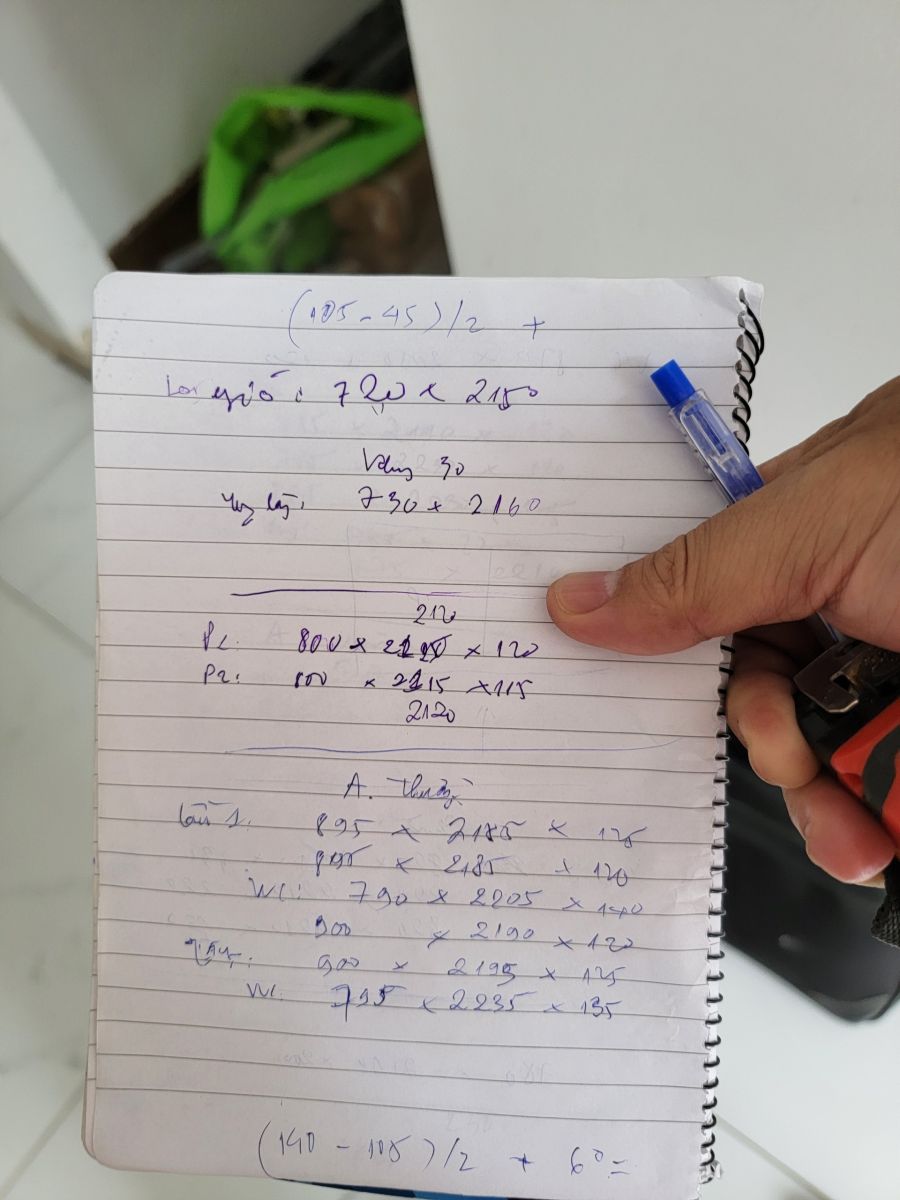 (105 - 45)/2 +
gió: 720 x 2150
30
730 x 2160
2120
800 x x 120
P2: 800 x 2115 x 115
2120
A. Thưởng
lầu 1. 895 x 2185 x 125
895 x 2185 x 120
WC: 790 x 2205 x 140
900 x 2190 x 120
900 x 2195 x 125
WC: 795 x 2235 x 135
(140 - 105)/2 + 60 =